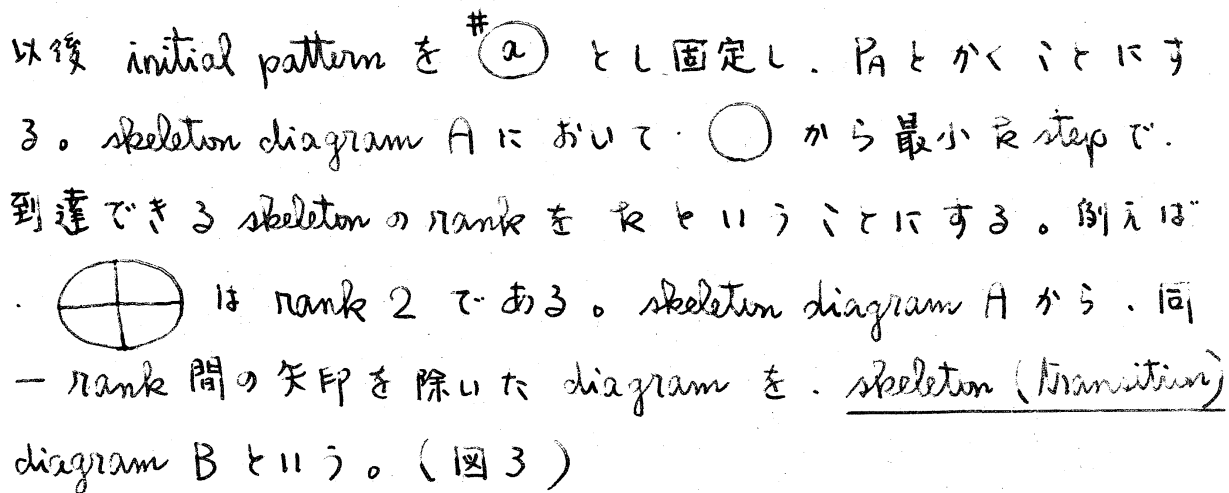 以後 initial pattern を #ⓐ とし固定し、PAとかくことにす
る。skeleton diagram A において、◯ から最小 k step で、
到達できる skeleton の rank を k ということにする。例えば
、 は rank 2 である。skeleton diagram A から、同
一 rank 間の矢印を除いた diagram を、skeleton (transition)
diagram B という。(図3)